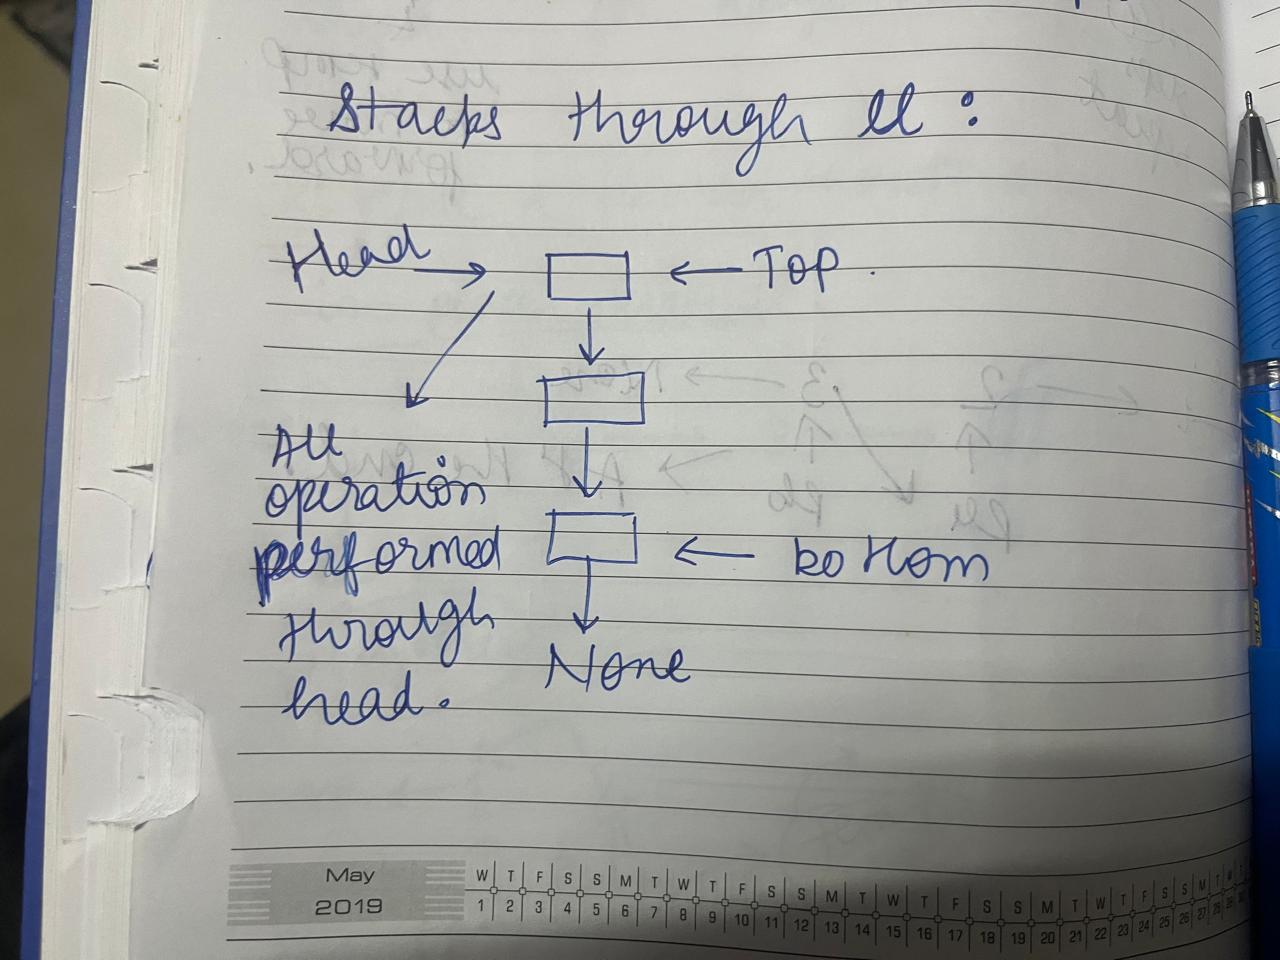 Stacks through ll :
Head → ← Top .
All
operation
performed
← bottom
through
None
head.
May
2019
W T F S S M T W T F S S M T W T F S S M T W T F S S M T W T
1 2 3 4 5 6 7 8 9 10 11 12 13 14 15 16 17 18 19 20 21 22 23 24 25 26 27 28 29